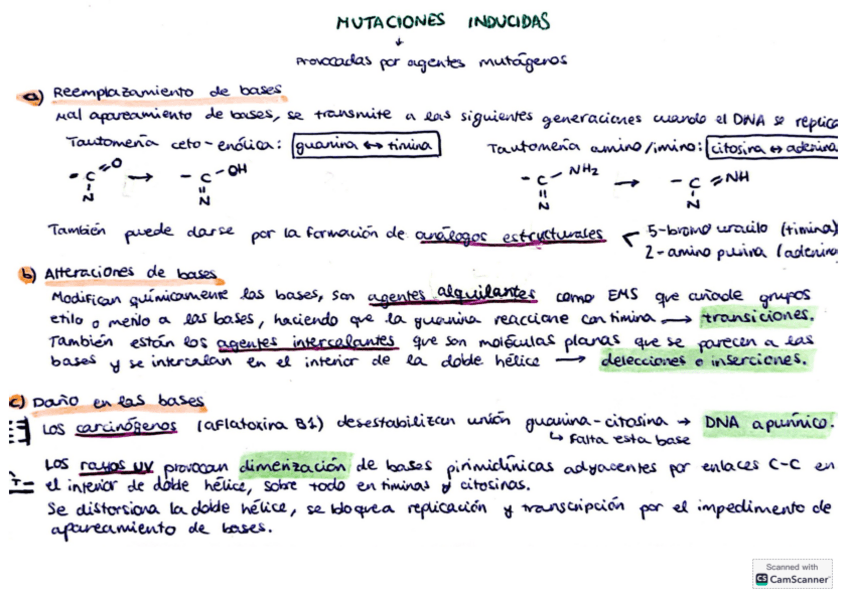 MUTACIONES INDUCIDAS
↓
Provocadas por agentes mutágenos
a) Reemplazamiento de bases
Mal apareamiento de bases, se transmite a las siguientes generaciones cuando el DNA se replica
Tautomería ceto-enólica: guanina ↔ timina
Tautomería amino/imino: citosina ↔ adenina
- C = O → - C - OH
N N
- C - NH2 → - C = NH
N N
También puede darse por la formación de análogos estructurales < 5-bromo uracilo (timina)
2-amino purina (adenina
b) Alteraciones de bases
Modifican químicamente las bases, son agentes alquilantes como EMS que añade grupos
etilo o metilo a las bases, haciendo que la guanina reaccione con timina → transiciones.
También están los agentes intercalantes que son moléculas planas que se parecen a las
bases y se intercalan en el interior de la doble hélice → delecciones o inserciones.
c) Daño en las bases
Los carcinógenos (aflatoxina B1) desestabilizan unión guanina-citosina → DNA apurínico.
↳ Falta esta base
Los rayos UV provocan dimerización de bases pirimidínicas adyacentes por enlaces C-C en
T
el interior de doble hélice, sobre todo en timinas y citosinas.
Se distorsiona la doble hélice, se bloquea replicación y transcripción por el impedimento de
apareamiento de bases.
Scanned with
CS CamScanner